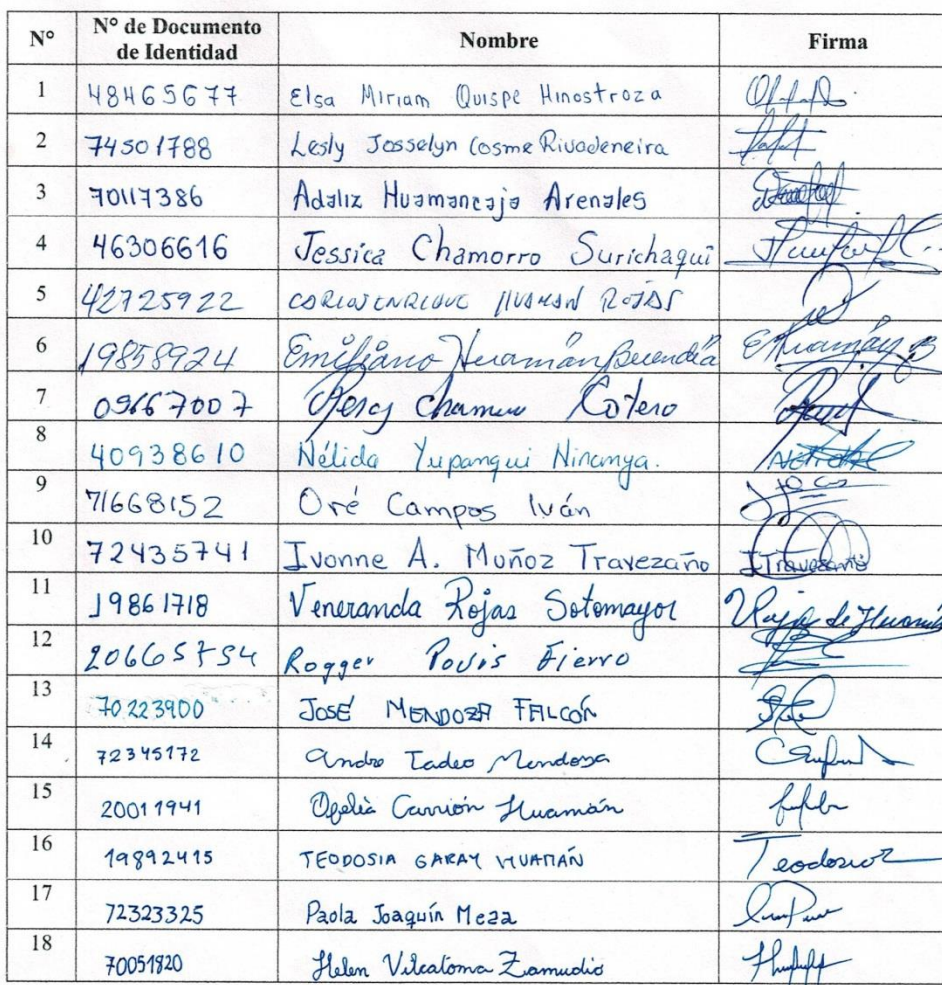 N° N° de Documento de Identidad Nombre Firma
1 48465677 Elsa Miriam Quispe Hinostroza
2 74501788 Lesly Josselyn Cosme Rivadeneira
3 70117386 Adaliz Huamancaja Arenales
4 46306616 Jessica Chamorro Surichaqui
5 42725922 HUAMAN ROJAS
6 19858924 Emiliano Huamán Buendía EHuamán B
7 09667007 Percy Chamorro Cotero
8 40938610 Nélida Yupanqui Ninanya.
9 71668152 Oré Campos Iván
10 72435741 Ivonne A. Muñoz Travezaño ITravezaño
11 19861718 Veneranda Rojas Sotomayor VRojas de Huamán
12 20665754 Rogger Povis Fierro
13 70223900 JOSÉ MENDOZA FALCÓN
14 72345172 Andre Tadeo Mendoza
15 20011941 Ofelia Carrión Huamán
16 19892415 TEODOSIA GARAY HUAMÁN Teodosia
17 72323325 Paola Joaquín Meza
18 70051820 Helen Vilcatoma Zamudio